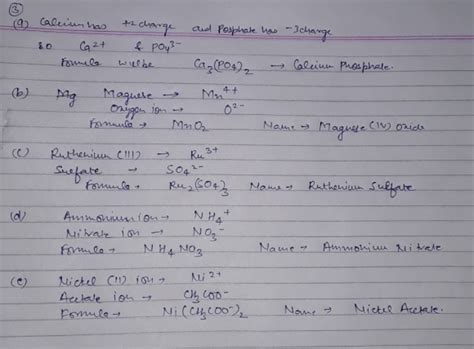 ③
(a) Calcium has +2 change and Posphate has -3 change
so Ca2+ & PO4 3-
Formula will be Ca3(PO4)2 → Calcium Phosphate.
(b) Mg Magnese → Mn4+
Oxygen ion → O2-
Formula → MnO2 Name → Magnese (IV) Oxide
(c) Ruthenium (III) → Ru3+
Sulfate → SO4 2-
Formula → Ru2(SO4)3 Name → Ruthenium Sulfate
(d) Ammonium ion → NH4+
Nitrate ion → NO3-
Formula → NH4NO3 Name → Ammonium Nitrate
(e) Nickel (II) ion → Ni2+
Acetate ion → CH3COO-
Formula → Ni(CH3COO-)2 Name → Nickel Acetate.